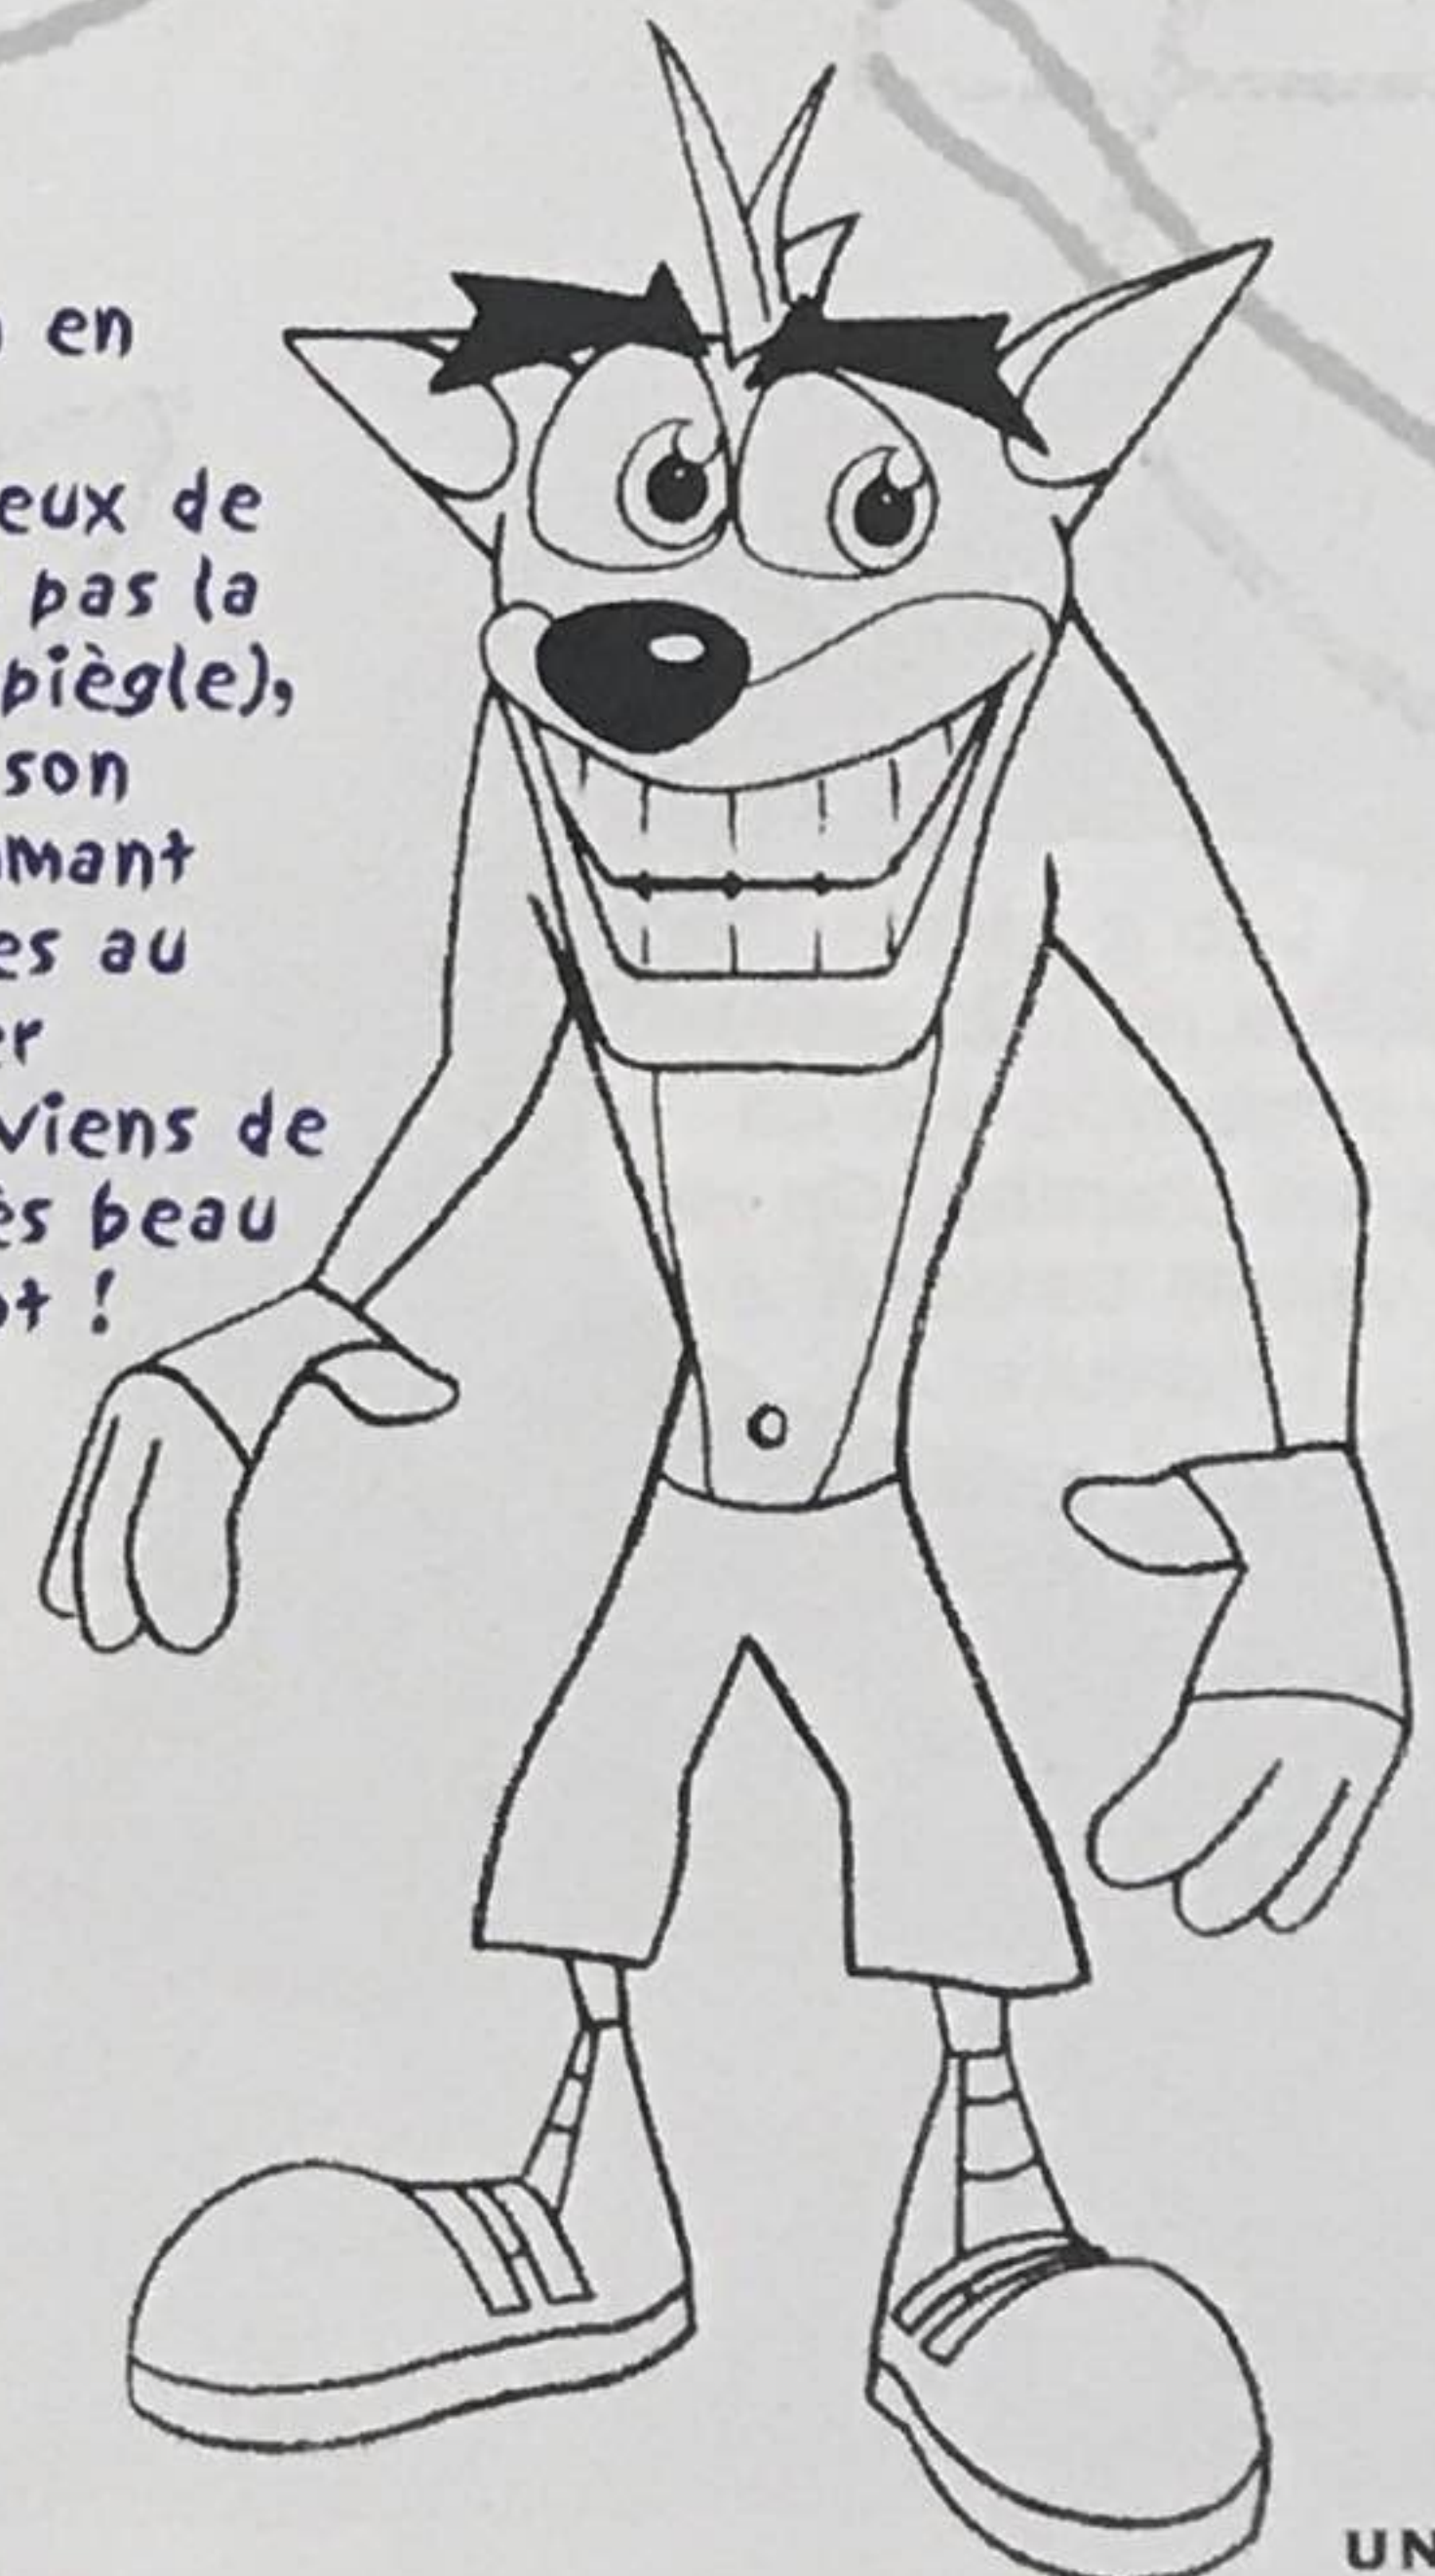 en
eux de
pas la
piègle),
son
mant
es au
er
viens de
ès beau
ot !
UN